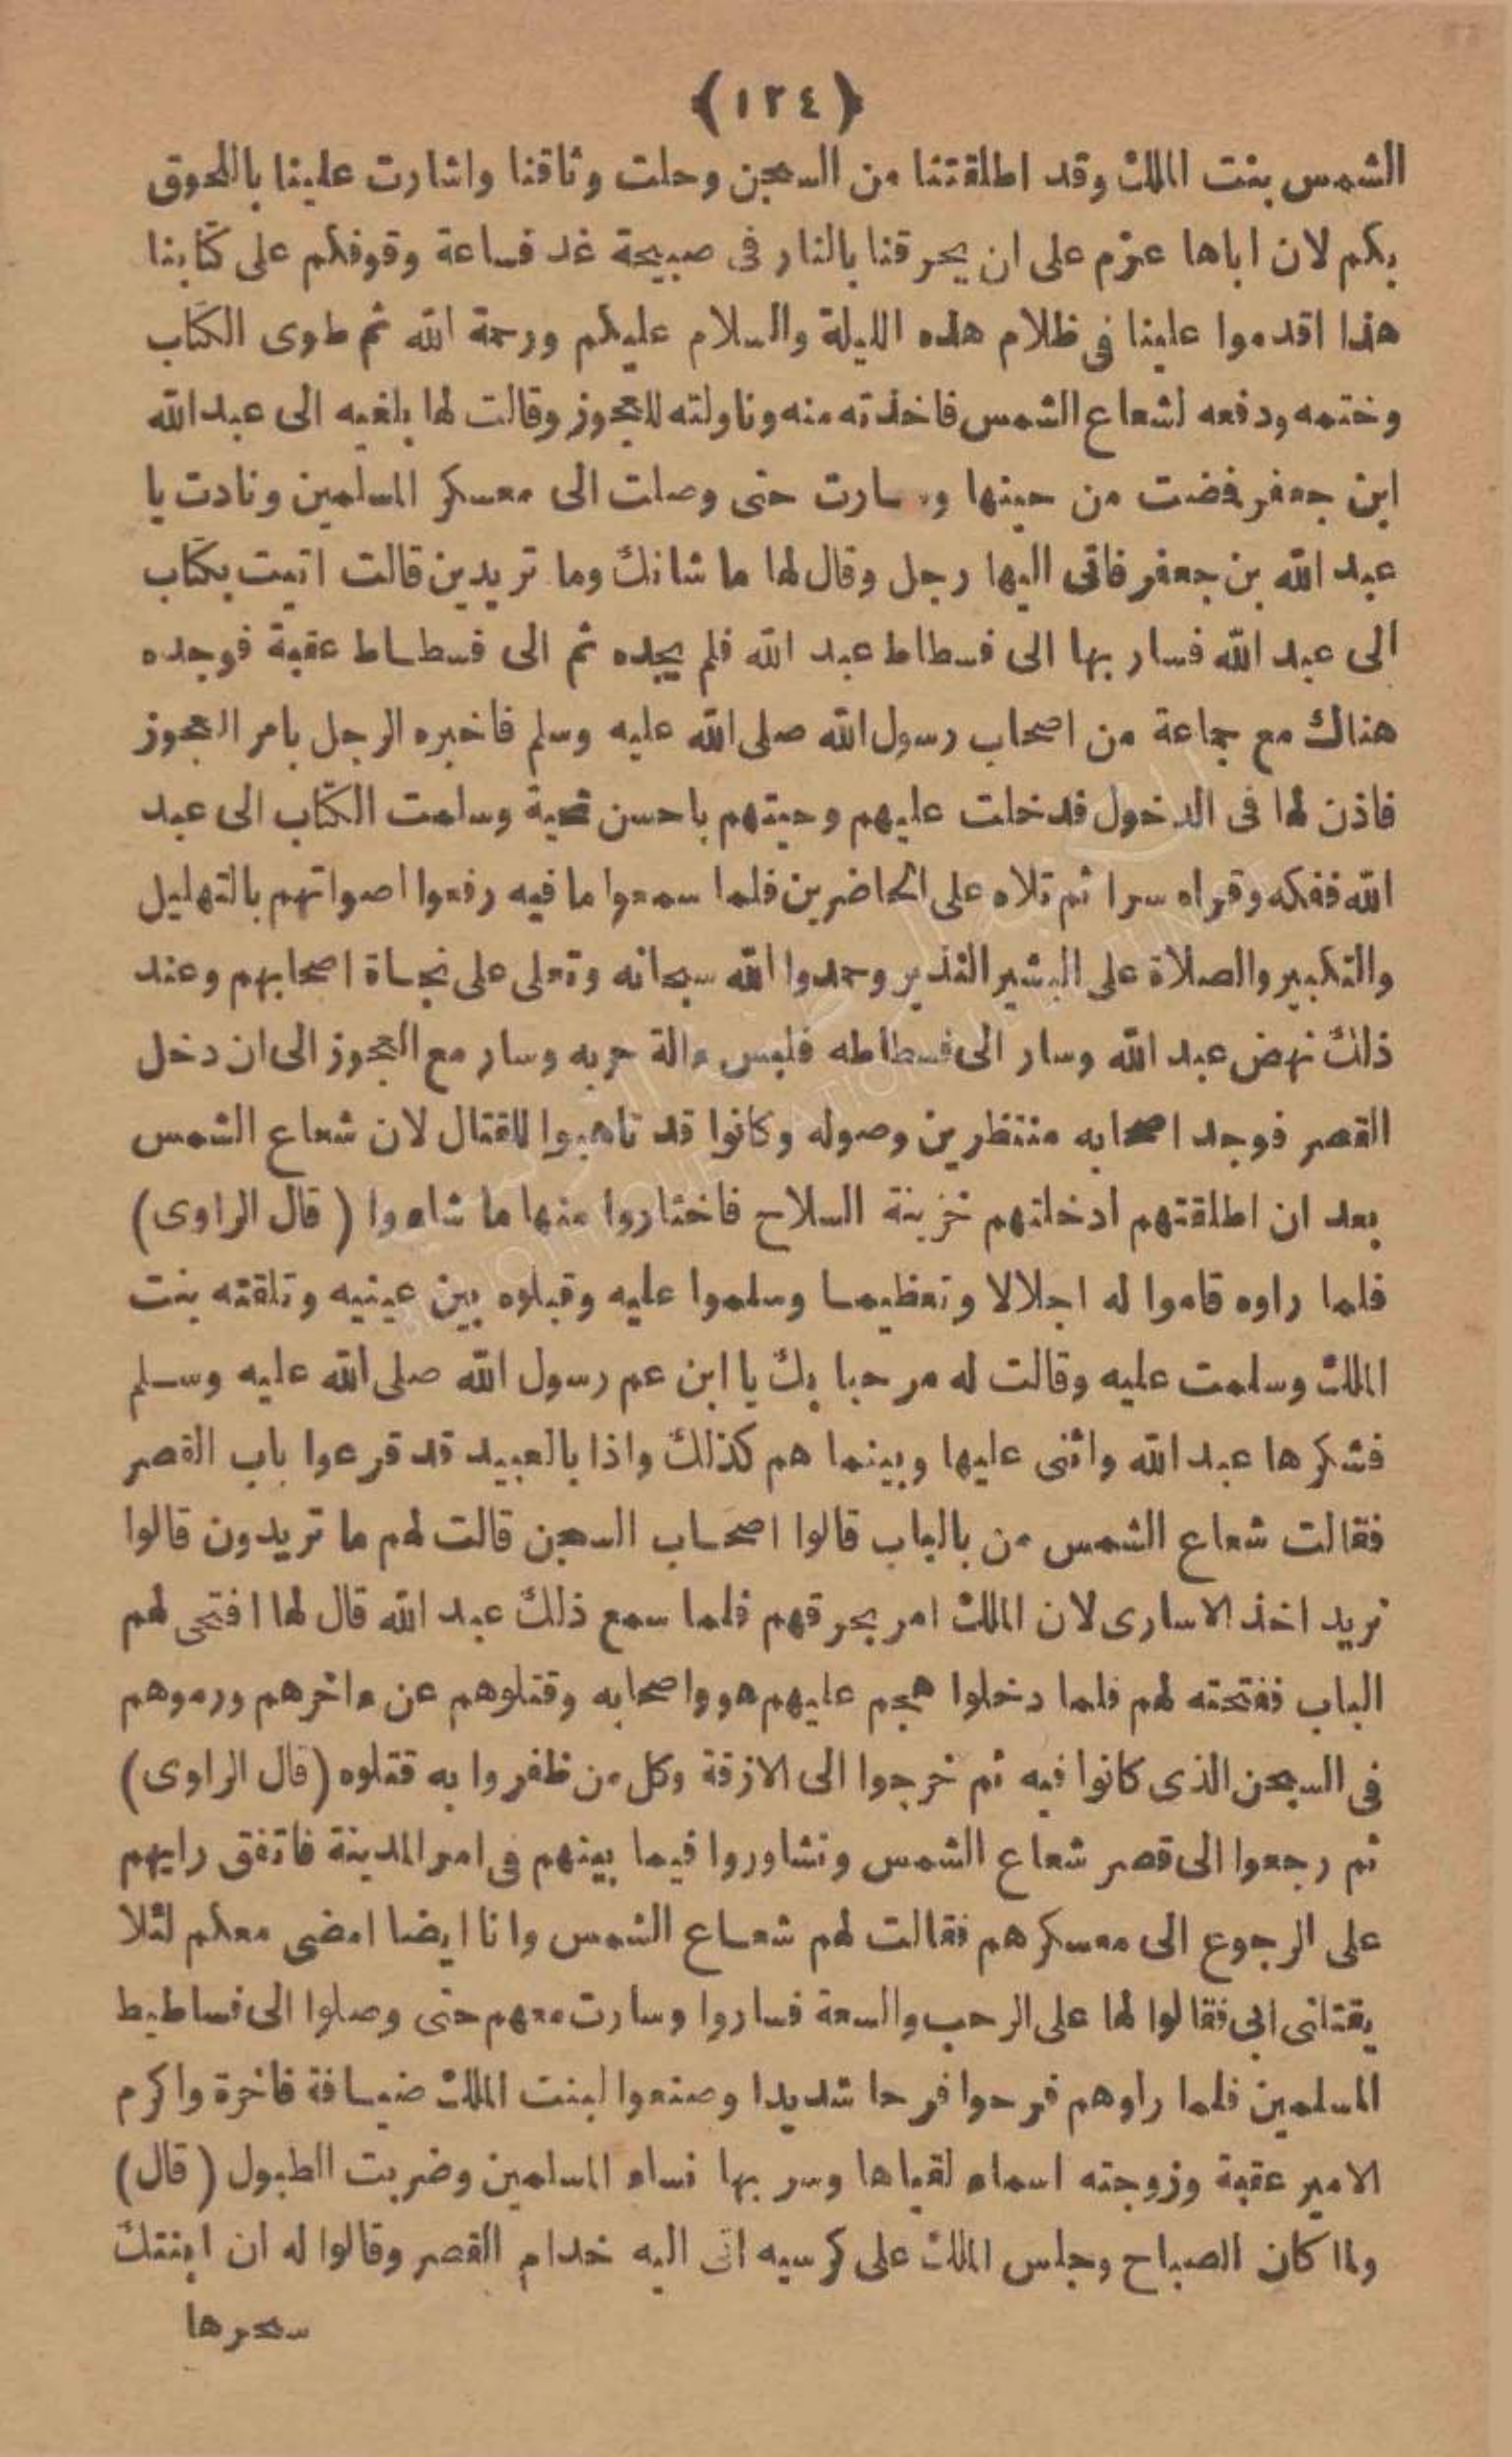 ﴿١٢٤﴾
الشمس بنت الملك وقد اطلقتنا من السجن وحلت وثاقنا واشارت علينا باللحوق
بكم لان اباها عزم على ان يحرقنا بالنار فى صبيحة غد فساعة وقوفكم على كتابنا
هذا اقدموا علينا فى ظلام هذه الليلة والسلام عليكم ورحمة الله ثم طوى الكتاب
وختمه ودفعه لشعاع الشمس فاخذته منه وناولته للعجوز وقالت لها بلغيه الى عبد الله
ابن جعفر فمضت من حينها وسارت حتى وصلت الى معسكر المسلمين ونادت يا
عبد الله بن جعفر فاتى اليها رجل وقال لها ما شانك وما تريدين قالت اتيت بكتاب
الى عبد الله فسار بها الى فسطاط عبد الله فلم يجده ثم الى فسطاط عقبة فوجده
هناك مع جماعة من اصحاب رسول الله صلى الله عليه وسلم فاخبره الرجل بامر العجوز
فاذن لها فى الدخول فدخلت عليهم وحيتهم باحسن تحية وسلمت الكتاب الى عبد
الله ففكه وقراه سرا ثم تلاه على الحاضرين فلما سمعوا ما فيه رفعوا اصواتهم بالتهليل
والتكبير والصلاة على البشير النذير وحمدوا الله سبحانه وتعلى على نجاة اصحابهم وعند
ذلك نهض عبد الله وسار الى فسطاطه فلبس ءالة حربه وسار مع العجوز الى ان دخل
القصر فوجد اصحابه منتظرين وصوله وكانوا قد تاهبوا للقتال لان شعاع الشمس
بعد ان اطلقتهم ادخلتهم خزينة السلاح فاختاروا منها ما شاءوا (قال الراوى)
فلما راوه قاموا له اجلالا وتعظيما وسلموا عليه وقبلوه بين عينيه وتلقته بنت
الملك وسلمت عليه وقالت له مرحبا بك يا ابن عم رسول الله صلى الله عليه وسلم
فشكرها عبد الله واثنى عليها وبينما هم كذلك واذا بالعبيد قد قرعوا باب القصر
فقالت شعاع الشمس من بالباب قالوا اصحاب السجن قالت لهم ما تريدون قالوا
نريد اخذ الاسارى لان الملك امر بحرقهم فلما سمع ذلك عبد الله قال لها افتحى لهم
الباب ففتحته لهم فلما دخلوا هجم عليهم هو واصحابه وقتلوهم عن ءاخرهم ورموهم
فى السجن الذى كانوا فيه ثم خرجوا الى الازقة وكل من ظفروا به قتلوه (قال الراوى)
ثم رجعوا الى قصر شعاع الشمس وتشاوروا فيما بينهم فى امر المدينة فاتفق رايهم
على الرجوع الى معسكرهم فقالت لهم شعاع الشمس وانا ايضا امضى معكم لئلا
يقتلنى ابى فقالوا لها على الرحب والسعة فساروا وسارت معهم حتى وصلوا الى فساطيط
المسلمين فلما راوهم فرحوا فرحا شديدا وصنعوا لبنت الملك ضيافة فاخرة واكرم
الامير عقبة وزوجته اسماء لقياها وسر بها نساء المسلمين وضربت الطبول (قال)
ولما كان الصباح وجلس الملك على كرسيه اتى اليه خدام القصر وقالوا له ان ابنتك
سحرها